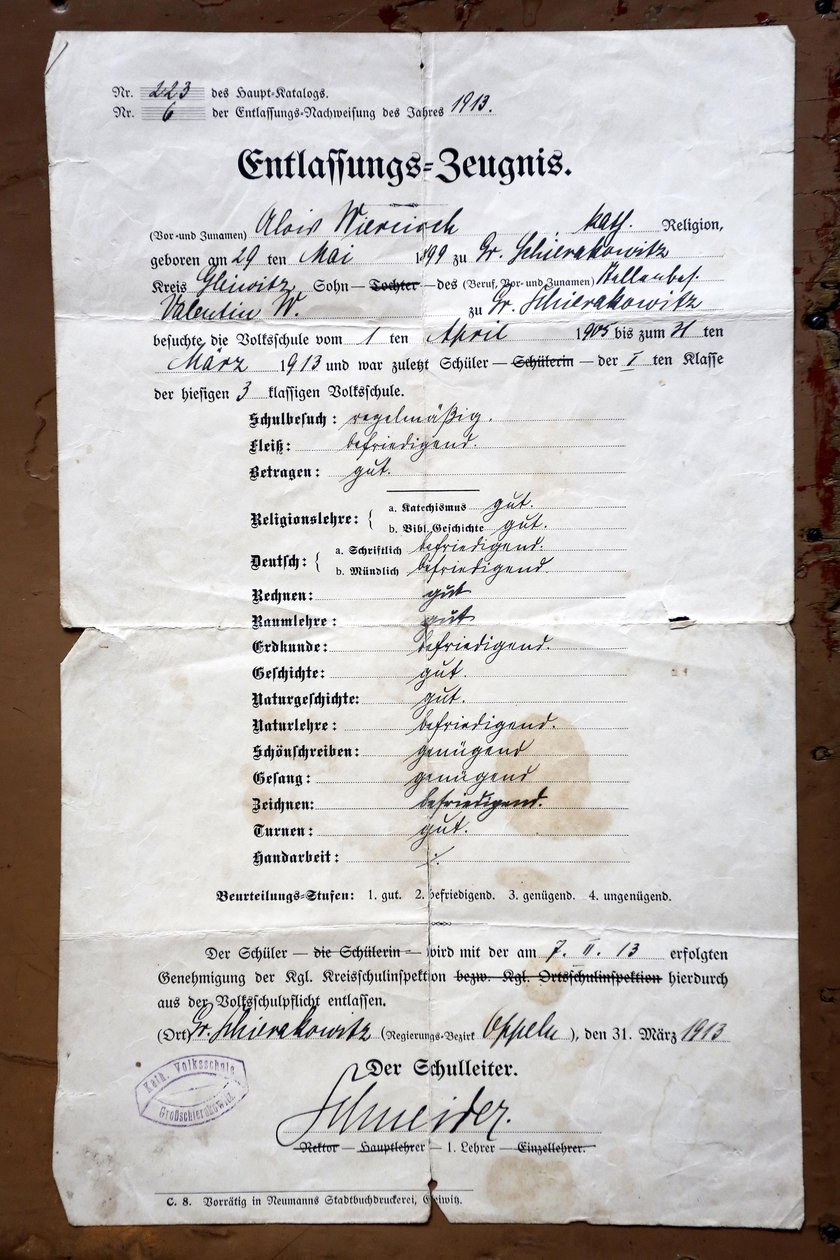 Nr. 223 des Haupt-Katalogs.
Nr. 6 der Entlassungs-Nachweisung des Jahres 1913.
Entlassungs-Zeugnis.
(Vor- und Zunamen) Alois Wiercioch, kath. Religion,
geboren am 29 ten Mai 1899 zu Gr. Schierakowitz
Kreis Gleiwitz, Sohn — Tochter — des (Beruf, Vor- und Zunamen) Stellenbes.
Valentin W. zu Gr. Schierakowitz
besuchte die Volksschule vom 1 ten April 1905 bis zum 31 ten
März 1913 und war zuletzt Schüler — Schülerin — der I ten Klasse
der hiesigen 3 klassigen Volksschule.
Schulbesuch: regelmäßig.
Fleiß: befriedigend.
Betragen: gut.
Religionslehre: { a. Katechismus gut.
b. Bibl. Geschichte gut.
Deutsch: { a. Schriftlich befriedigend.
b. Mündlich befriedigend.
Rechnen: gut
Raumlehre: gut
Erdkunde: befriedigend.
Geschichte: gut.
Naturgeschichte: gut.
Naturlehre: befriedigend.
Schönschreiben: genügend
Gesang: genügend
Zeichnen: befriedigend.
Turnen: gut.
Handarbeit: ·/·
Beurteilungs-Stufen: 1. gut. 2. befriedigend. 3. genügend. 4. ungenügend.
Der Schüler — die Schülerin — wird mit der am 7. II. 13 erfolgten
Genehmigung der Kgl. Kreisschulinspektion bezw. Kgl. Ortsschulinspektion hierdurch
aus der Volksschulpflicht entlassen.
(Ort) Gr. Schierakowitz (Regierungs-Bezirk Oppeln), den 31. März 1913
Kath. Volksschule
Großschierakowitz
Der Schulleiter.
Schneider.
Rektor — Hauptlehrer — 1. Lehrer — Einzellehrer.
C. 8. Vorrätig in Neumanns Stadtbuchdruckerei, Gleiwitz.